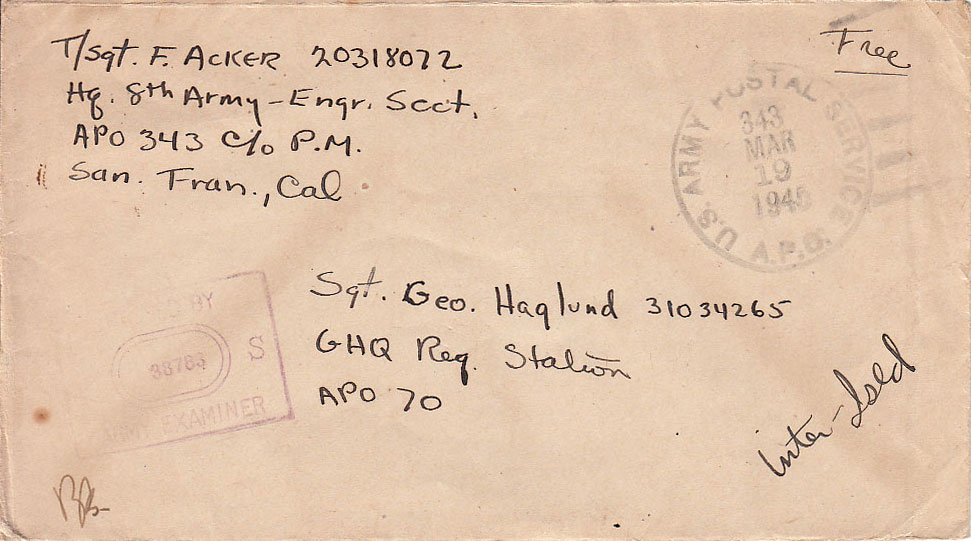 T/Sgt. F. Acker 20318072
Hq. 8th Army - Engr. Sect.
APO 343 c/o P.M.
San. Fran., Cal
Free
U.S. ARMY POSTAL SERVICE
343
MAR
19
1945
A.P.O.
Sgt. Geo. Haglund 31034265
GHQ Reg. Station
APO 70
BY
38786 S
ARMY EXAMINER
inter-Isld